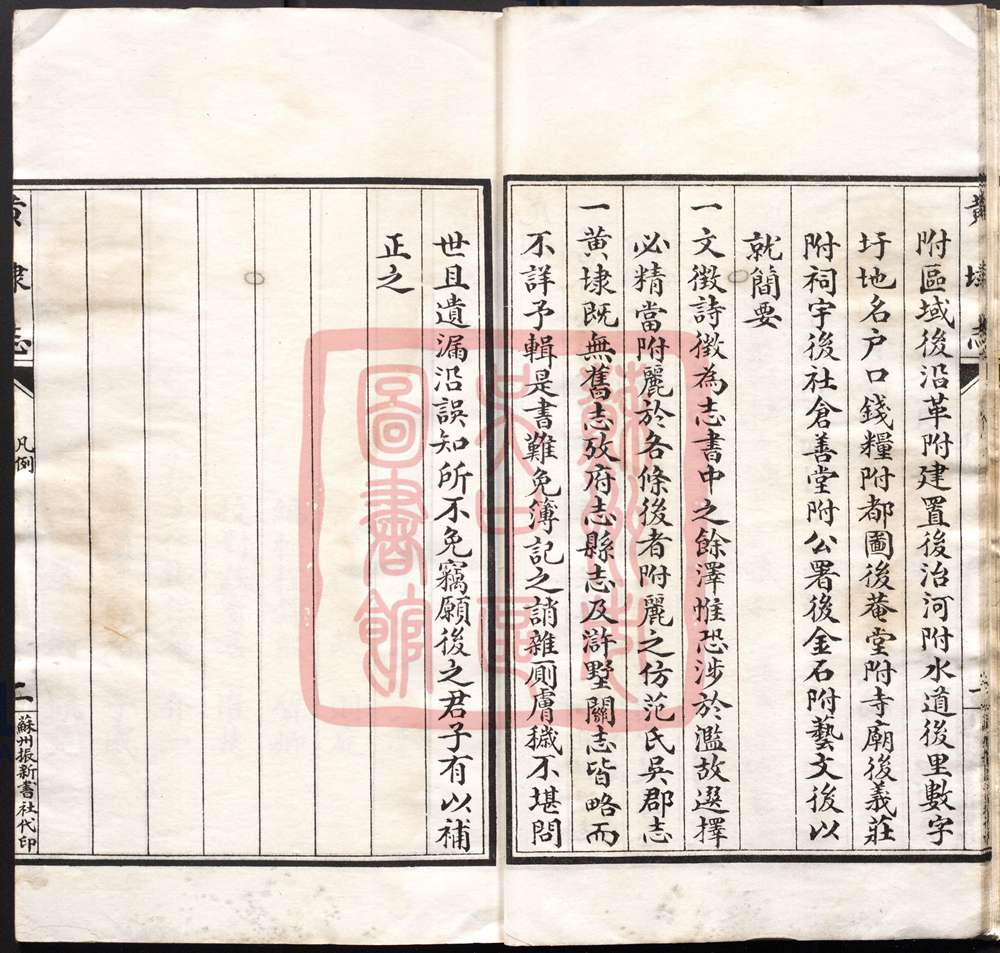 黄埭志
附區域後沿革附建置後治河附水道後里數字
圩地名户口錢糧附都圖後菴堂附寺廟後義莊
附祠宇後社倉善堂附公署後金石附藝文後以
就簡要
一文徵詩徵為志書中之餘澤惟恐涉於濫故選擇
必精當附麗於各條後者附麗之仿范氏吳郡志
一黄埭既無舊志攷府志縣志及滸墅關志皆略而
不詳予輯是書難免簿記之誚雜厠膚穢不堪問
世且遺漏沿誤知所不免竊願後之君子有以補
正之
黄埭志
凡例
二
蘇州振新書社代印
蘇州市
吳中區
圖書館